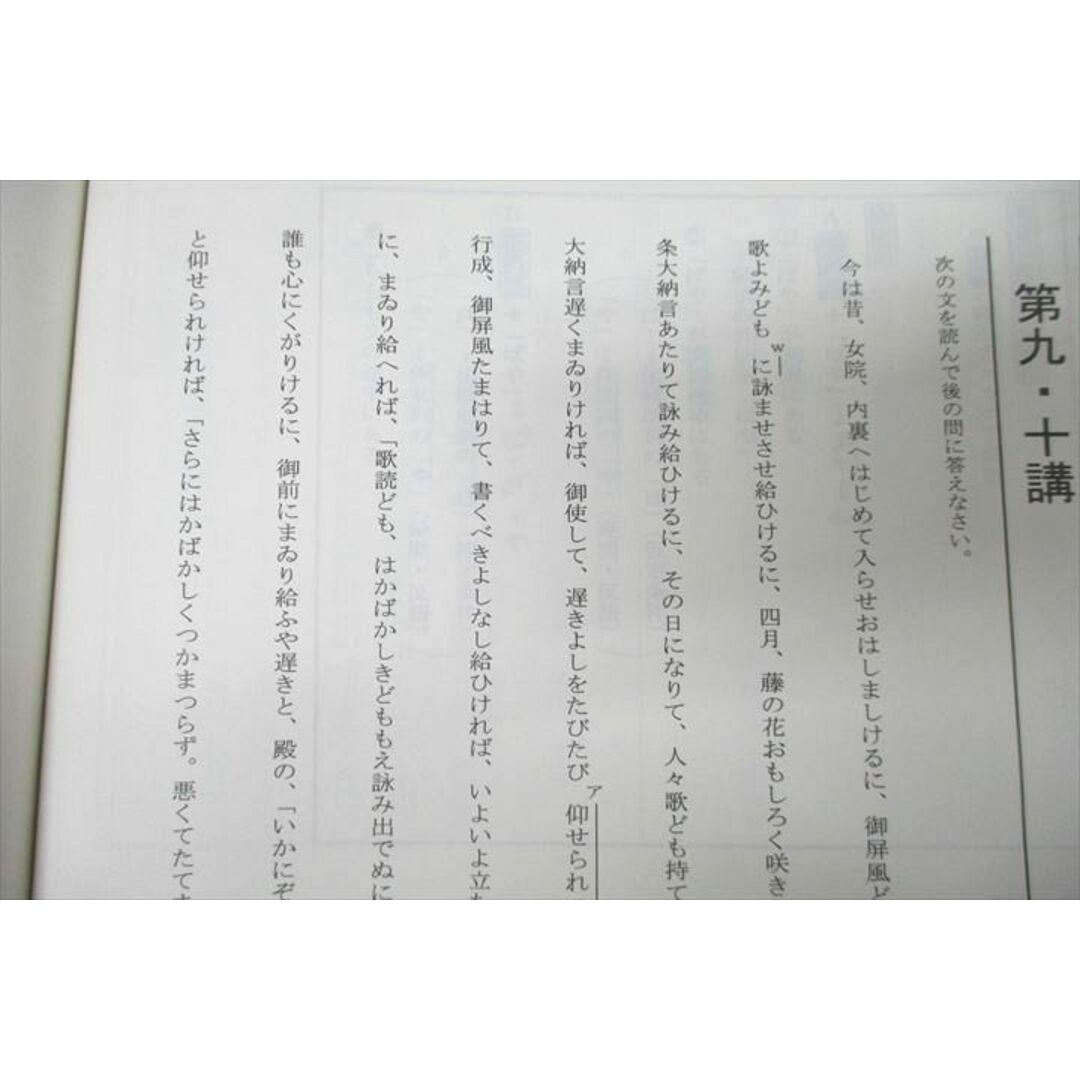 第九・十講
次の文を読んで後の問に答えなさい。
今は昔、女院、内裏へはじめて入らせおはしましけるに、御屏風ど
歌よみども
w
に詠ませさせ給ひけるに、四月、藤の花おもしろく咲き
条大納言あたりて詠み給ひけるに、その日になりて、人々歌ども持て
大納言遅くまゐりければ、御使して、遅きよしをたびたび
ア
仰せられ
行成、御屏風たまはりて、書くべきよしなし給ひければ、いよいよ立ち
に、まゐり給へれば、「歌読ども、はかばかしきどももえ詠み出でぬに
誰も心にくがりけるに、御前にまゐり給ふや遅きと、殿の、「いかにぞ
と仰せられければ、「さらにはかばかしくつかまつらず。悪くてたてま